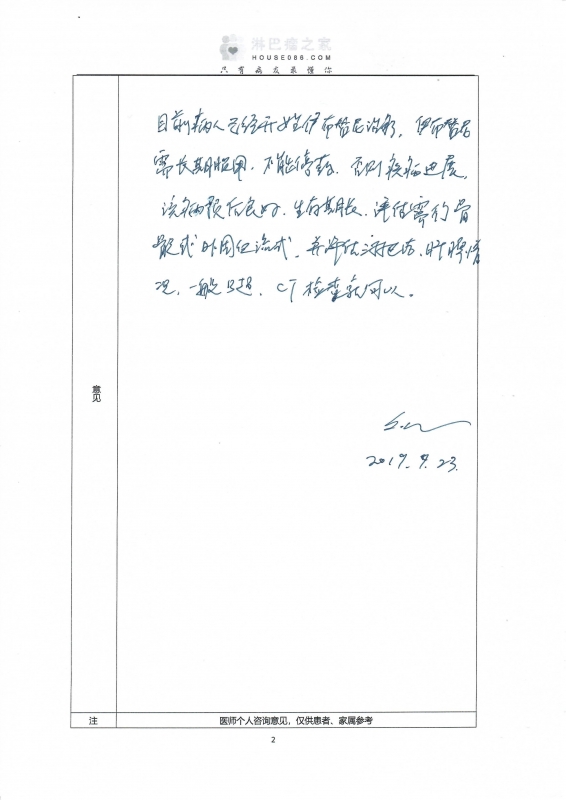 淋巴瘤之家
HOUSE086.COM
只有病友最懂你
目前病人已经开始伊布替尼治疗，伊布替尼
需长期服用，不能停药，否则疾病进展，
该病预后良好，生存期长，评估需行骨
髓或外周血流式，并评估淋巴结、肝脾情
况，一般B超、CT检查就可以。
意见
2019.9.23
注
医师个人咨询意见，仅供患者、家属参考
2